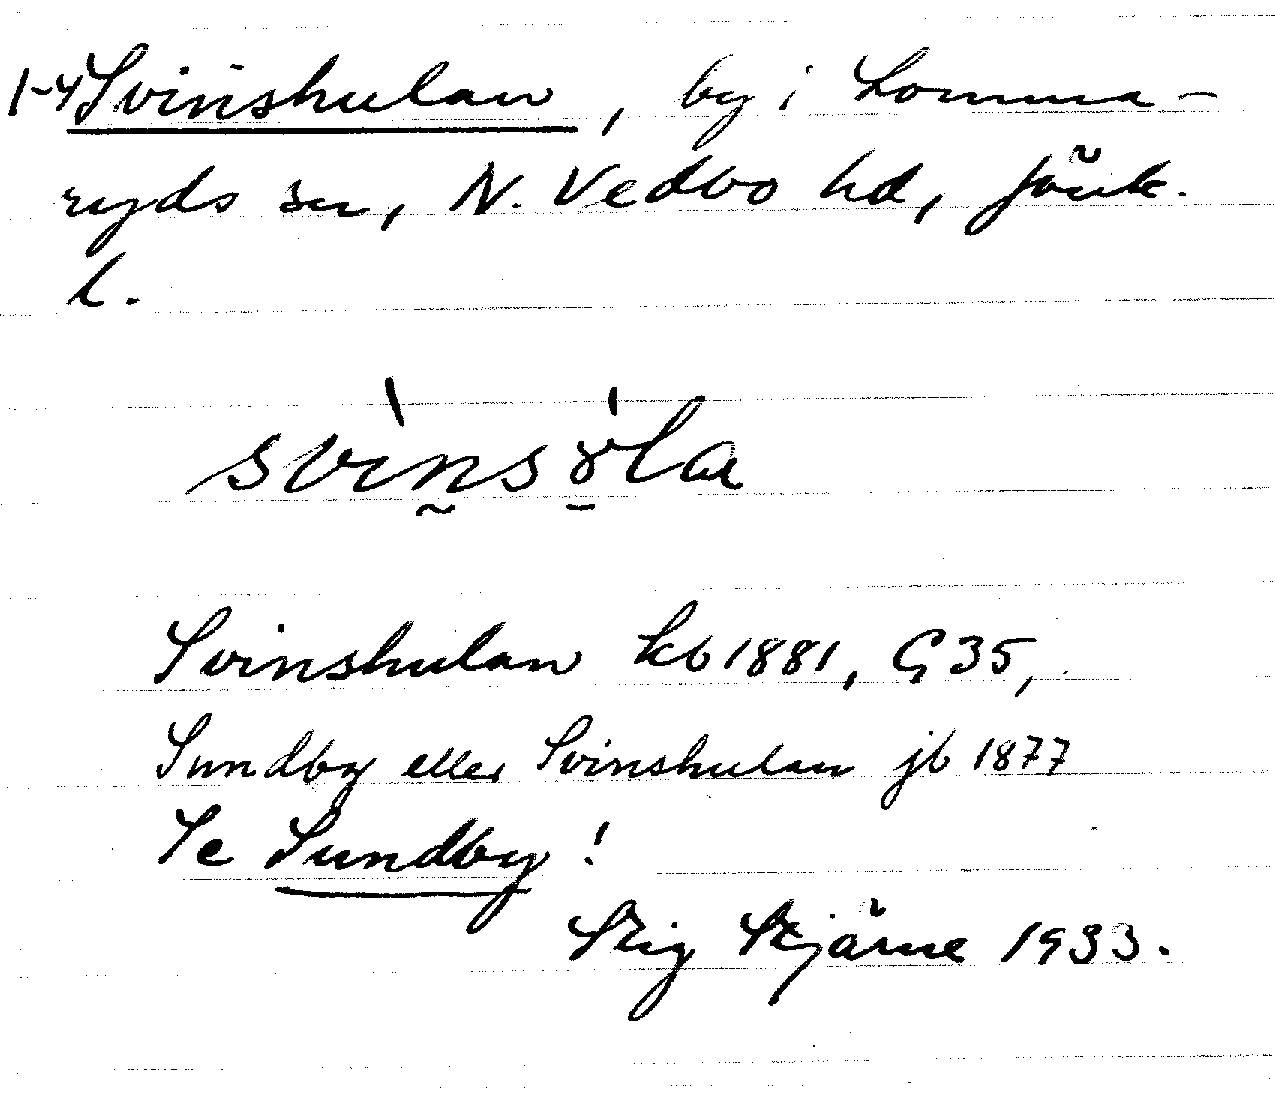 1-4 Svinshulan, by i Lomma-
ryds sn, N. Vedbo hd, Jönk.
l.
Svinshulan kb 1881, G 35,
Sundby eller Svinshulan jb 1877
Se Sundby!
Stig Stjärne 1933.